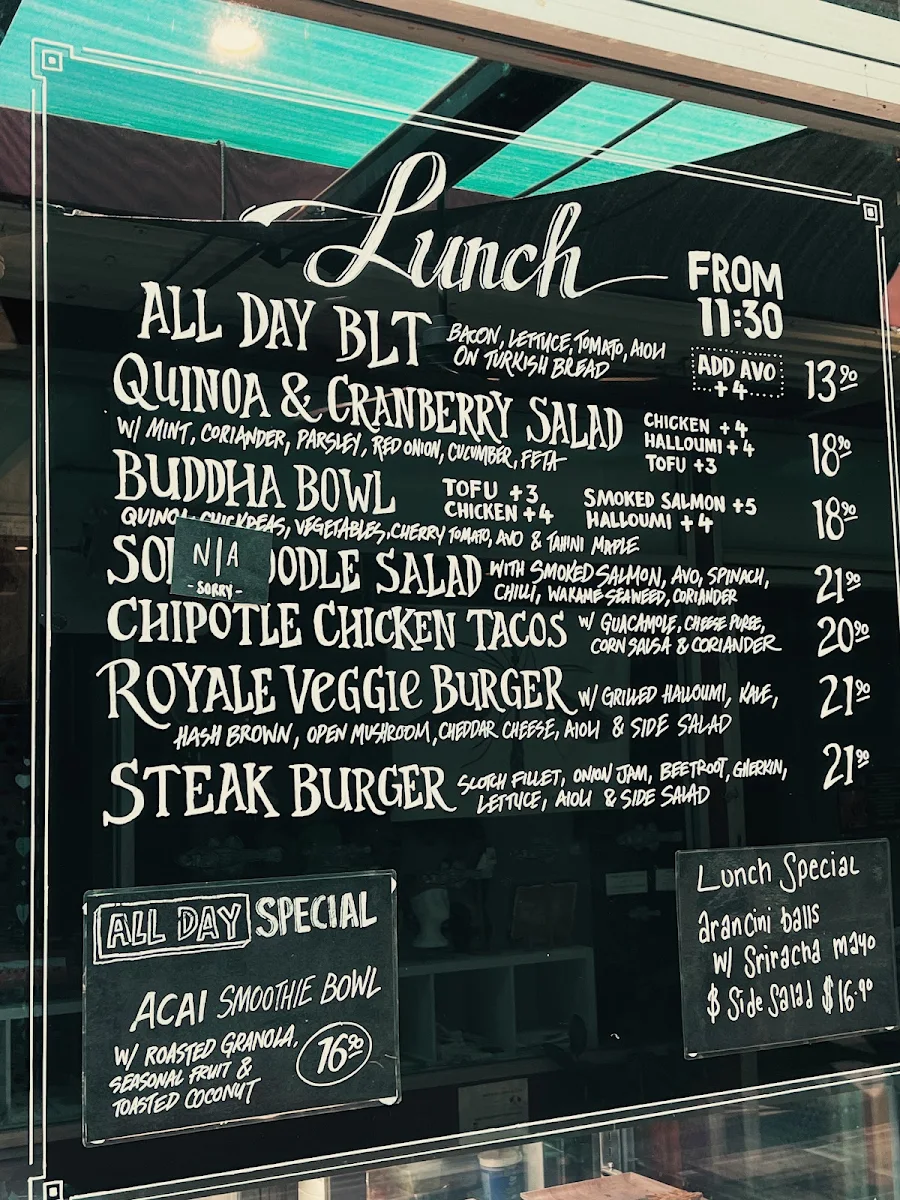 Lunch
FROM
11:30
ALL DAY BLT BACON, LETTUCE, TOMATO, AIOLI
ON TURKISH BREAD
ADD AVO
+4
13.90
QUINOA & CRANBERRY SALAD
W/ MINT, CORIANDER, PARSLEY, RED ONION, CUCUMBER, FETA
CHICKEN +4
HALLOUMI +4
TOFU +3
18.90
BUDDHA BOWL
TOFU +3
CHICKEN +4
SMOKED SALMON +5
HALLOUMI +4
18.90
QUINOA, CHICKPEAS, VEGETABLES, CHERRY TOMATO, AVO & TAHINI MAPLE
N/A
- SORRY -
SALAD WITH SMOKED SALMON, AVO, SPINACH,
CHILLI, WAKAME SEAWEED, CORIANDER
21.90
CHIPOTLE CHICKEN TACOS W/ GUACAMOLE, CHEESE PUREE,
CORN SALSA & CORIANDER
20.90
ROYALE VEGGIE BURGER W/ GRILLED HALLOUMI, KALE,
HASH BROWN, OPEN MUSHROOM, CHEDDAR CHEESE, AIOLI & SIDE SALAD
21.90
STEAK BURGER SCOTCH FILLET, ONION JAM, BEETROOT, GHERKIN,
LETTUCE, AIOLI & SIDE SALAD
21.90
ALL DAY SPECIAL
ACAI SMOOTHIE BOWL
W/ ROASTED GRANOLA,
SEASONAL FRUIT &
TOASTED COCONUT
16.90
Lunch Special
arancini balls
w/ Sriracha mayo
$ Side Salad $16.90